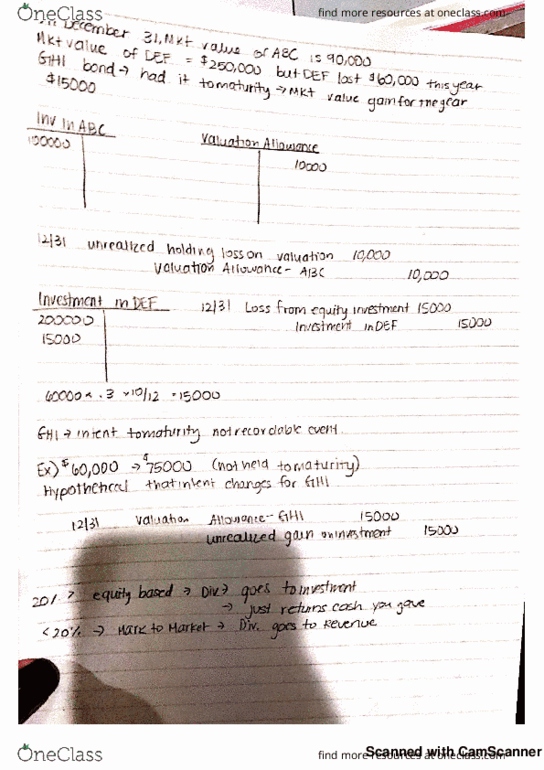 OneClass
find more resources at oneclass.com
December 31, Mkt value of ABC is 90,000
Mkt value of DEF = $250,000 but DEF lost $60,000 this year
GHI bond → had it to maturity → Mkt value gain for the year
$15000
Inv in ABC
Valuation Allowance
100000
10000
12/31 unrealized holding loss on valuation 10,000
Valuation Allowance - ABC 10,000
Investment in DEF
12/31 Loss from equity investment 15000
200000
Investment in DEF 15000
15000
60000 x .3 x 10/12 = 15000
GHI → intent to maturity not recordable event
Ex) $60,000 → $75000 (not held to maturity)
Hypothetical that intent changes for GHI
12/31 Valuation Allowance - GHI 15000
unrealized gain on investment 15000
20% > equity based → Div → goes to investment
→ just returns cash you gave
<20% → Mark to Market → Div. goes to Revenue
OneClass
find more resources at oneclass.com
Scanned with CamScanner